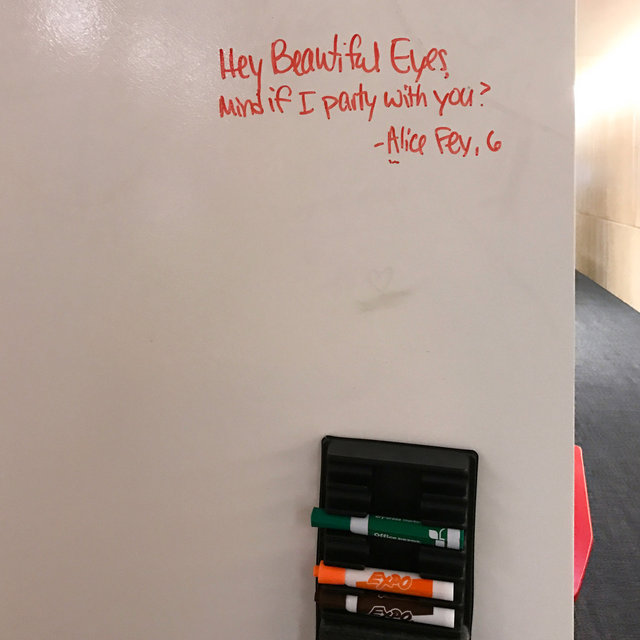 Hey Beautiful Eyes,
Mind if I party with you?
-Alice Fey, 6
Office
EXPO
EXPO